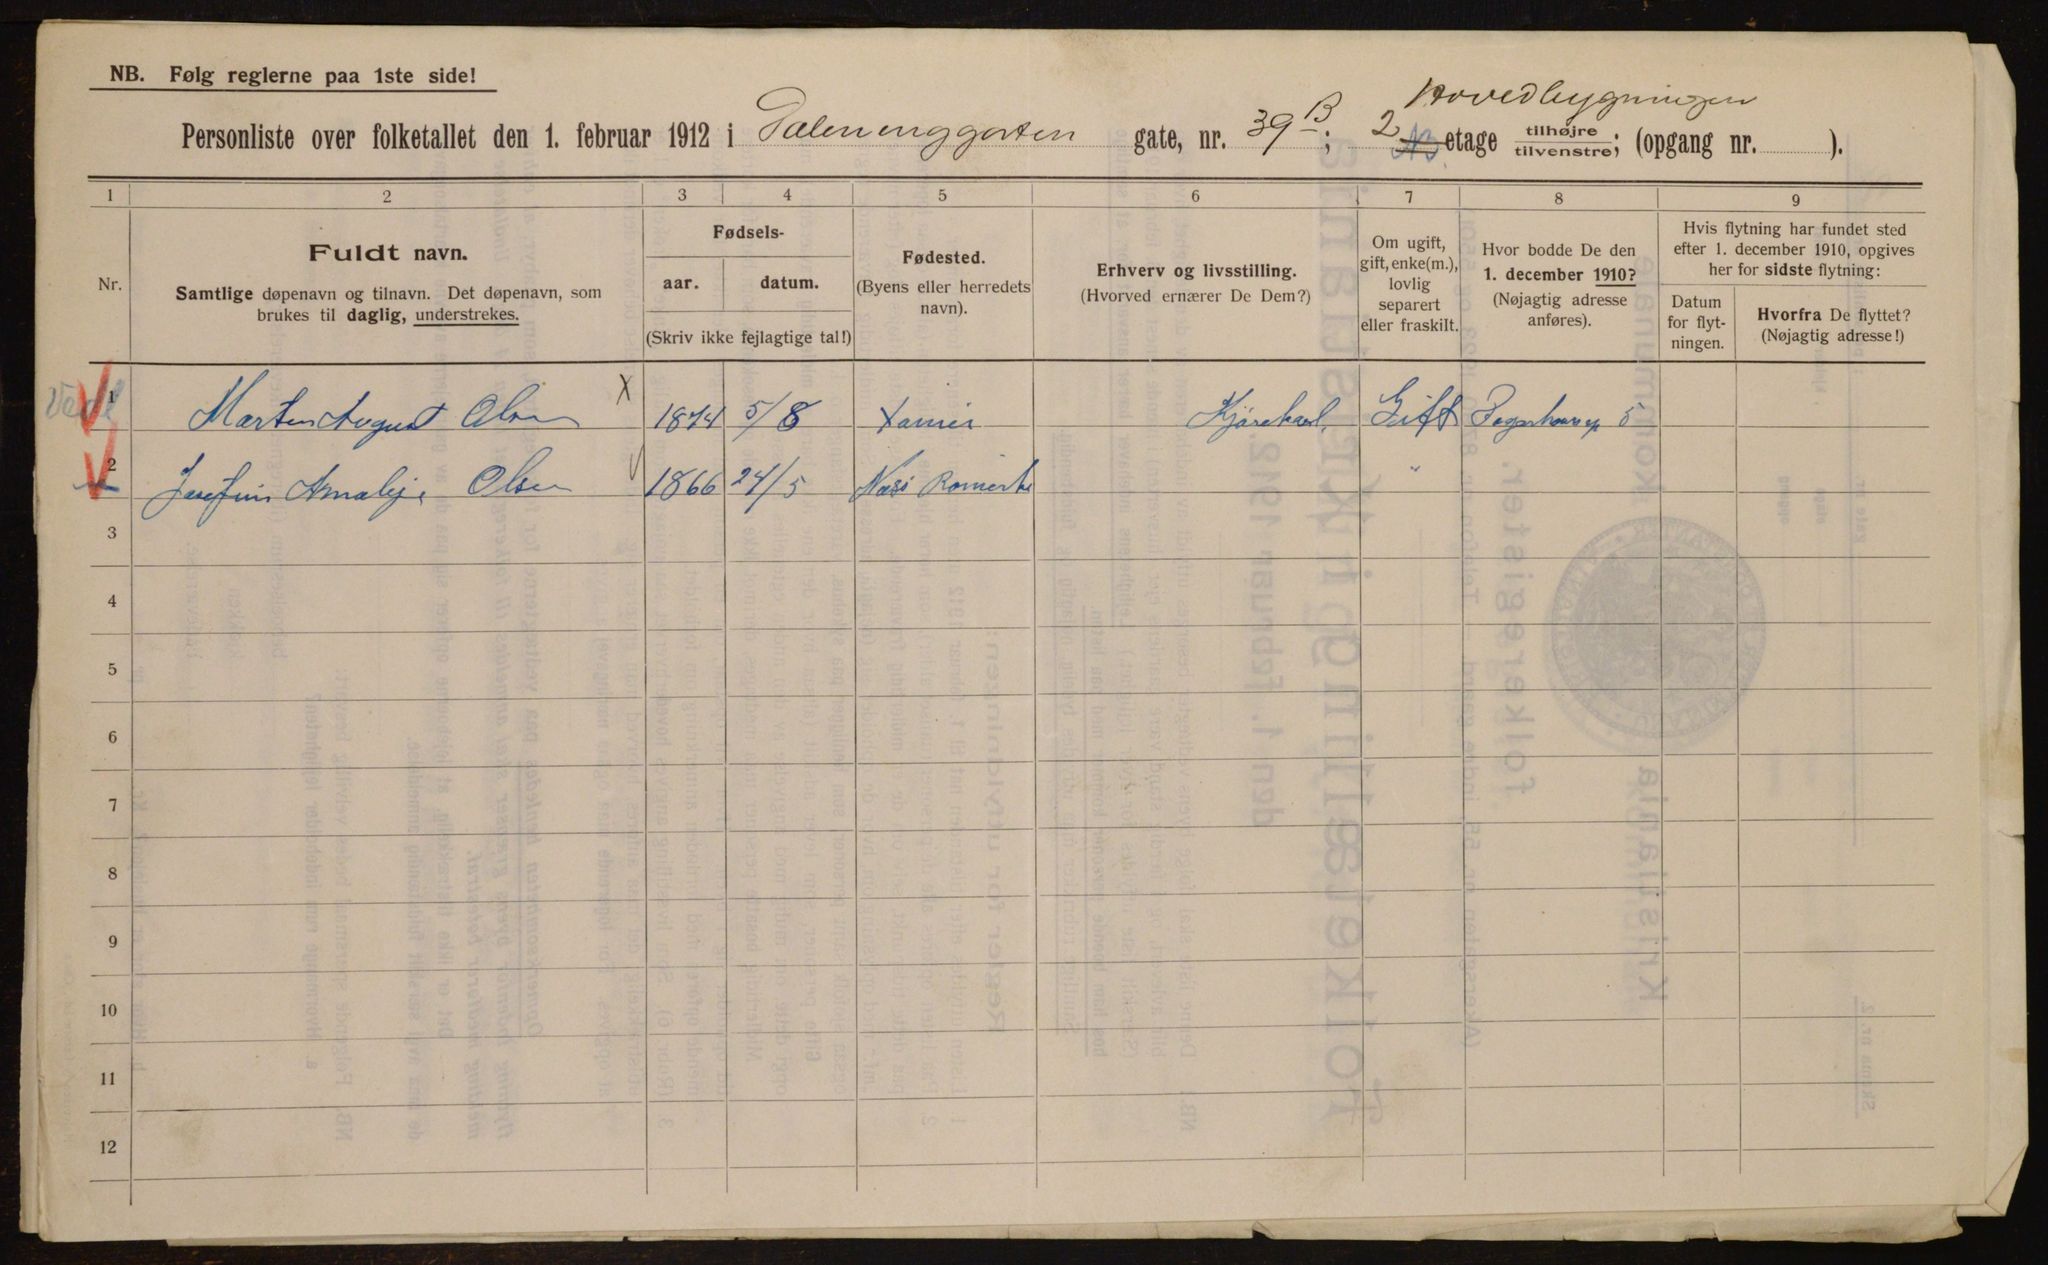 NB. Følg reglerne paa 1ste side!
Hovedbygningen
Personliste over folketallet den 1. februar 1912 i Dælenenggarten gate, nr. 39 B; 2 etage tilhøjre/tilvenstre; (opgang nr. ).
1 2 3 4 5 6 7 8 9
Nr.
Fuldt navn.
Samtlige døpenavn og tilnavn. Det døpenavn, som
brukes til daglig, understrekes.
Fødsels-
aar. datum.
(Skriv ikke fejlagtige tal!)
Fødested.
(Byens eller herredets
navn).
Erhverv og livsstilling.
(Hvorved ernærer De Dem?)
Om ugift,
gift, enke(m.),
lovlig
separert
eller fraskilt.
Hvor bodde De den
1. december 1910?
(Nøjagtig adresse
anføres).
Hvis flytning har fundet sted
efter 1. december 1910, opgives
her for sidste flytning:
Datum
for flyt-
ningen.
Hvorfra De flyttet?
(Nøjagtig adresse!)
1 Marten August Olsen X 1874 5/8 Kjørekarl. Gift 5
2 Josefine Amalie Olsen 1866 24/5 Næs Romerike "
3
4
5
6
7
8
9
10
11
12